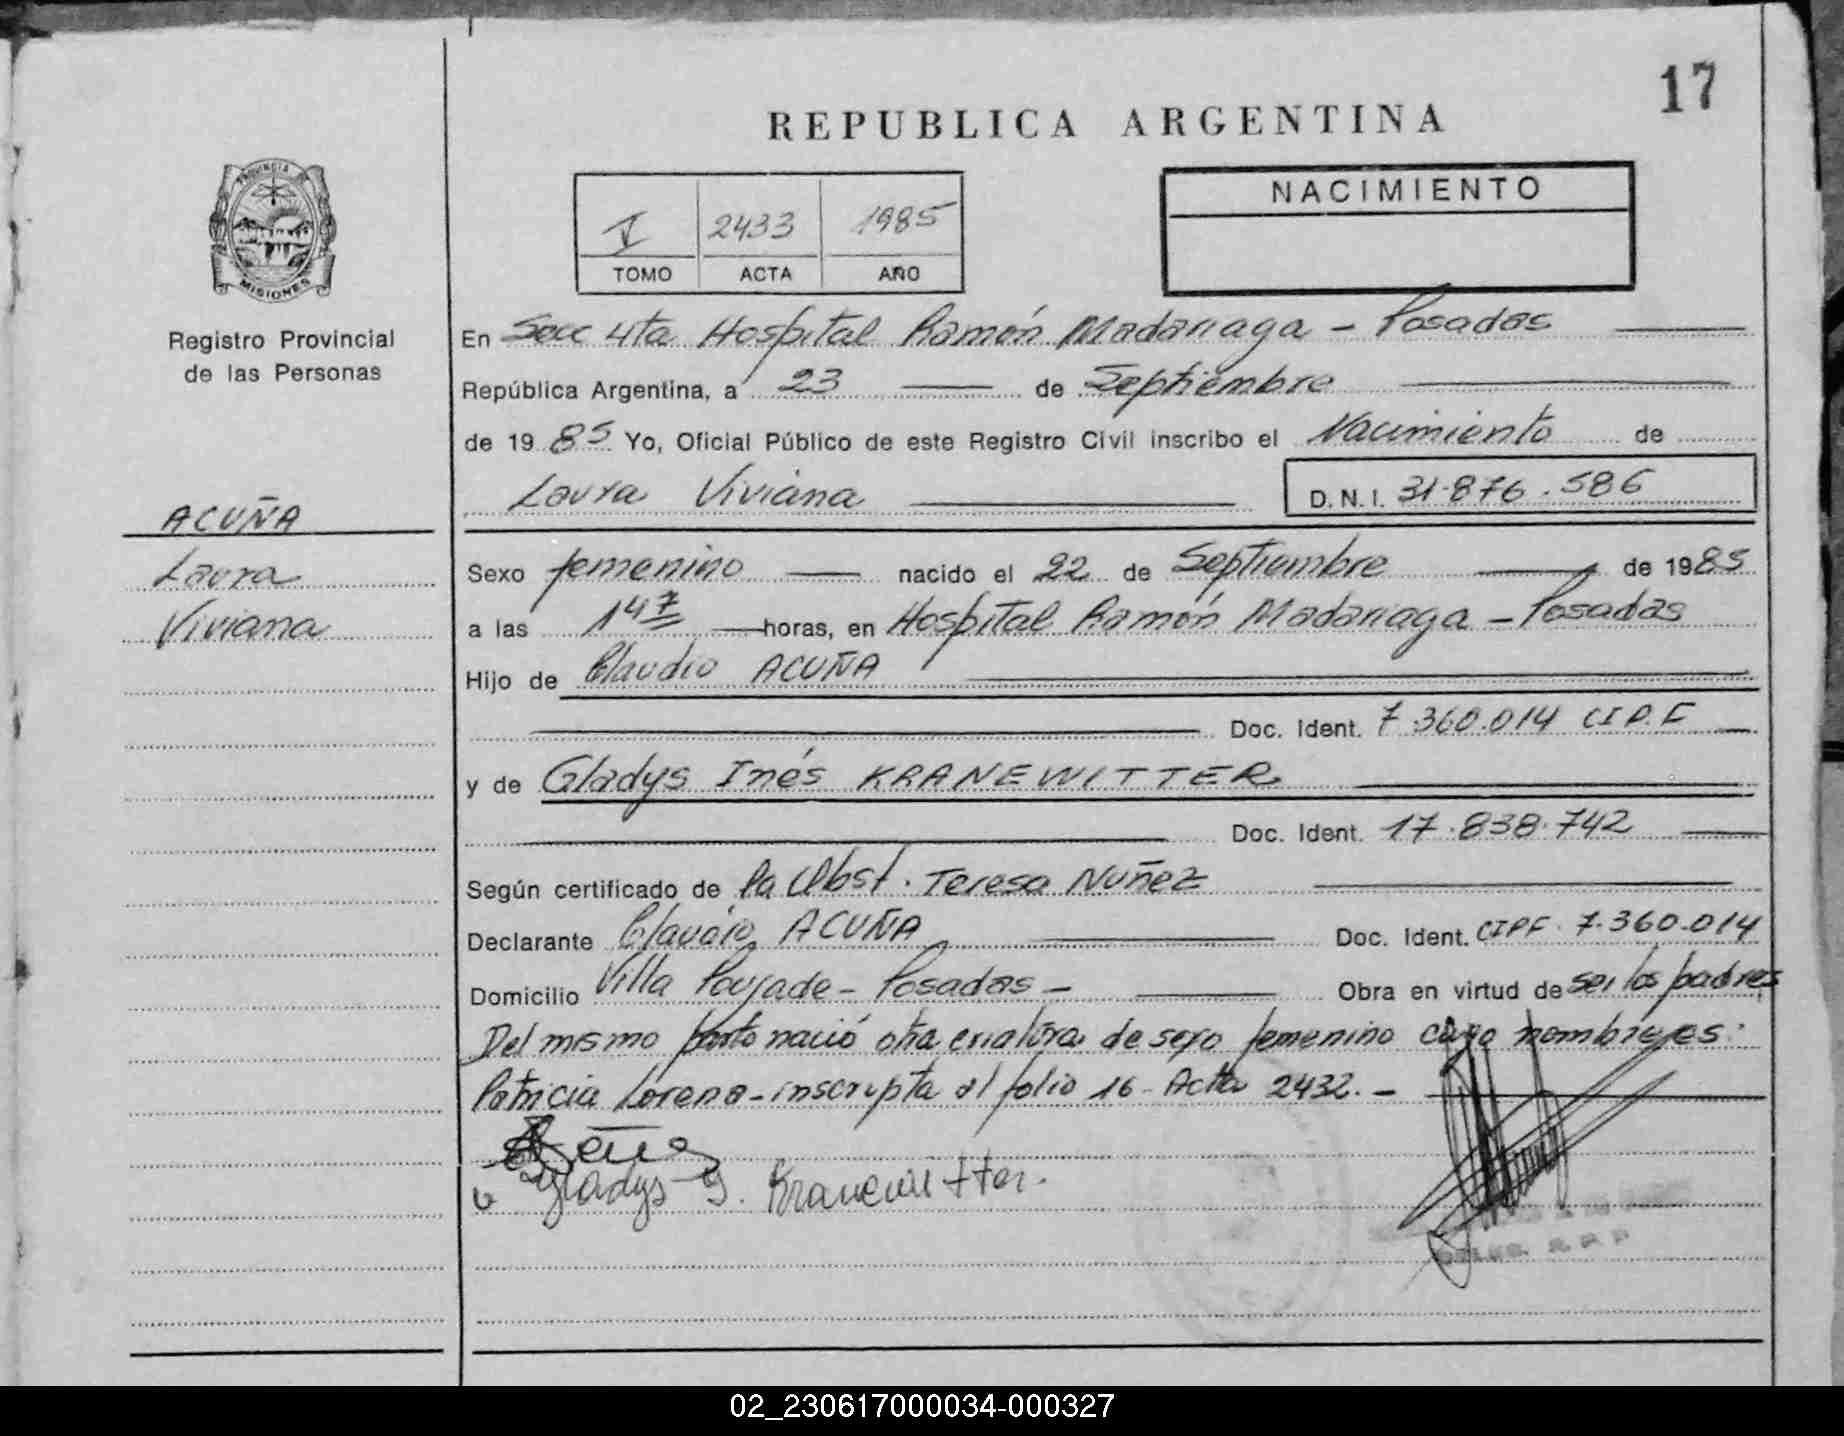 17
REPUBLICA ARGENTINA
PROVINCIA DE
MISIONES
Registro Provincial
de las Personas
I 2433 1985
TOMO ACTA AÑO
NACIMIENTO
En Secc 4ta Hospital Ramón Madariaga - Posadas
República Argentina, a 23 de Septiembre
de 1985 Yo, Oficial Público de este Registro Civil inscribo el Nacimiento de
Laura Viviana D.N.I. 31.876.586
ACUÑA
Laura
Viviana
Sexo femenino nacido el 22 de Septiembre de 1985
a las 14 7 horas, en Hospital Ramón Madariaga - Posadas
Hijo de Claudio ACUÑA
Doc. Ident. 7.360.014 CIPF
y de Gladys Inés KRANEWITTER
Doc. Ident. 17.838.742
Según certificado de la Obst. Teresa Nuñez
Declarante Claudio ACUÑA Doc. Ident. CIPF 7.360.014
Domicilio Villa Poujade - Posadas - Obra en virtud de ser los padres
Del mismo parto nació otra criatura de sexo femenino cuyo nombre es:
Patricia Lorena - inscripta al folio 16 - Acta 2432. -
Gladys I. Kranewitter.
02_230617000034-000327